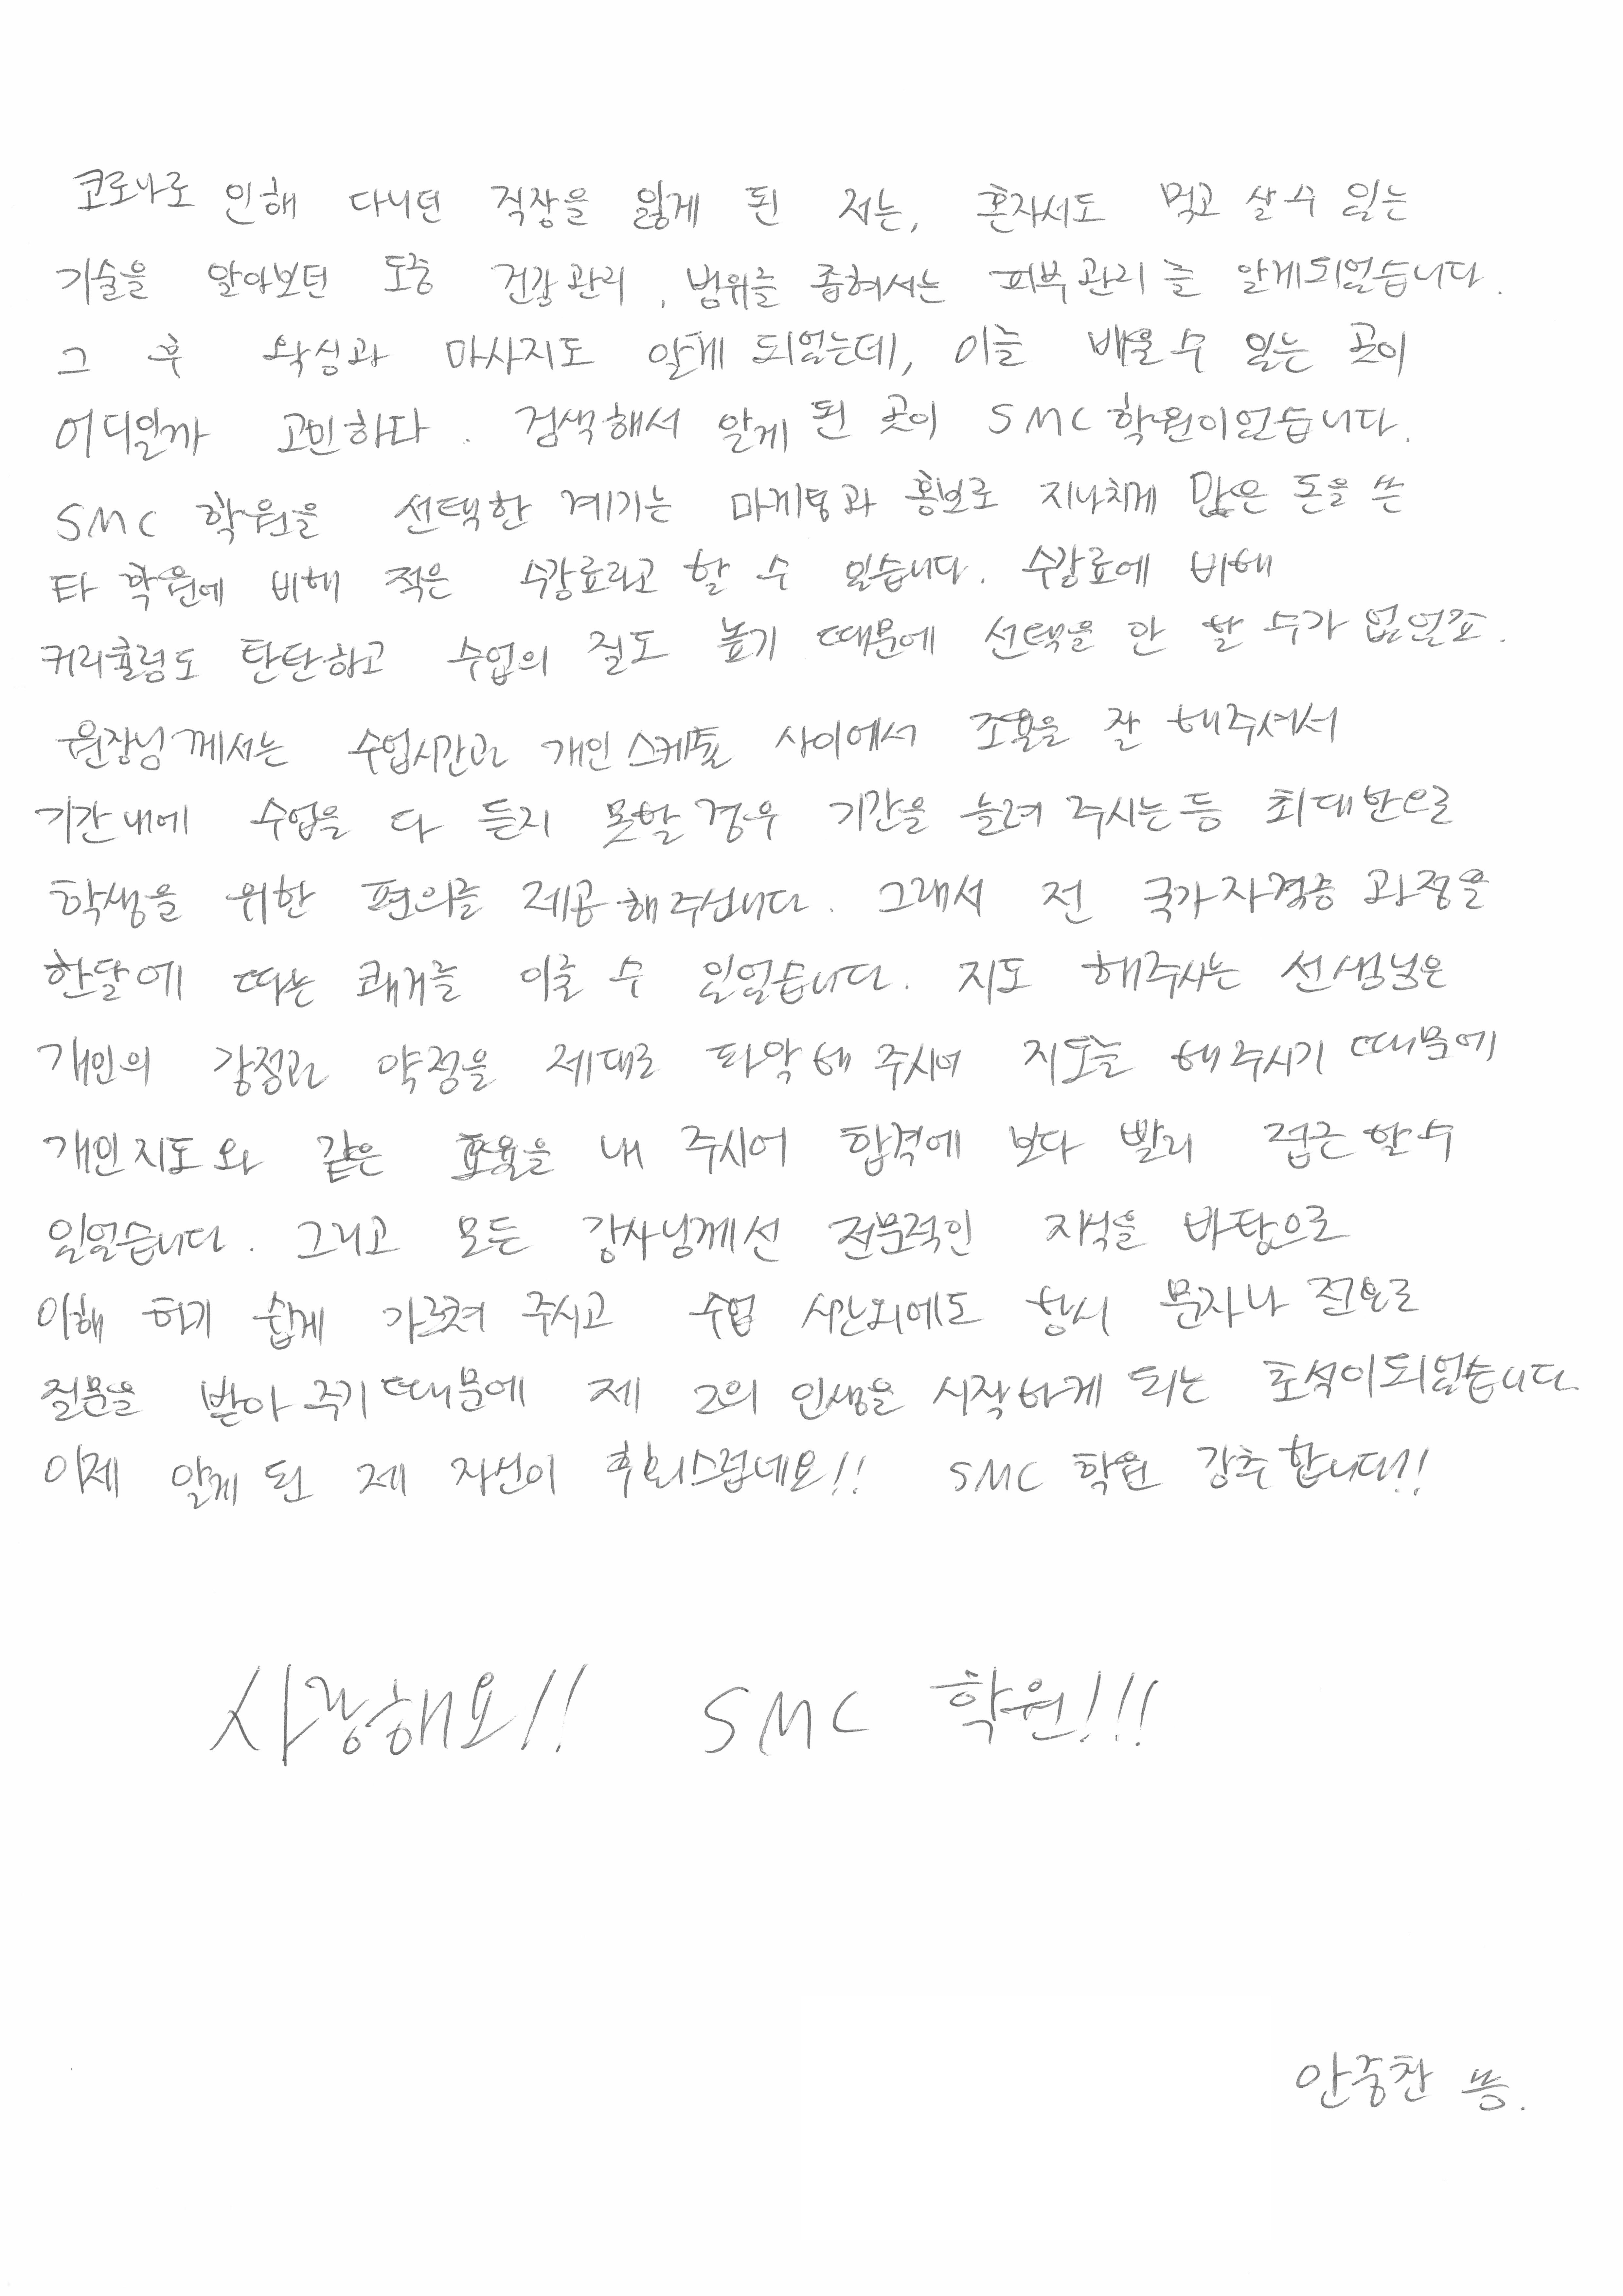 코로나로 인해 다니던 직장을 잃게 된 저는, 혼자서도 먹고 살 수 있는
기술을 알아보던 도중 건강관리, 범위를 좁혀서는 피부관리를 알게되었습니다.
그 후 왁싱과 마사지도 알게 되었는데, 이를 배울 수 있는 곳이
어디일까 고민하다. 검색해서 알게 된 곳이 SMC 학원이었습니다.
SMC 학원을 선택한 계기는 마케팅과 홍보로 지나치게 많은 돈을 쓴
타 학원에 비해 적은 수강료라고 할 수 있습니다. 수강료에 비해
커리큘럼도 탄탄하고 수업의 질도 높기 때문에 선택을 안 할 수가 없었죠.
원장님께서는 수업시간과 개인스케쥴 사이에서 조율을 잘 해주셔서
기간내에 수업을 다 듣지 못할 경우 기간을 늘려 주시는등 최대한으로
학생을 위한 편의를 제공해주십니다. 그래서 전 국가자격증 과정을
한달에 따는 쾌거를 이룰 수 있었습니다. 지도 해주시는 선생님은
개인의 강점과 약점을 제대로 파악해 주시어 지도를 해주시기 때문에
개인지도와 같은 효율을 내 주시어 합격에 보다 빨리 접근할 수
있었습니다. 그리고 모든 강사님께선 전문적인 지식을 바탕으로
이해 하기 쉽게 가르쳐 주시고 수업 시간외에도 항시 문자나 전화로
질문을 받아 주기 때문에 제 2의 인생을 시작하게 되는 초석이되었습니다.
이제 알게 된 제 자신이 후회스럽네요!! SMC 학원 강추합니다!!
사랑해요!! SMC 학원!!!
안중찬 씀.